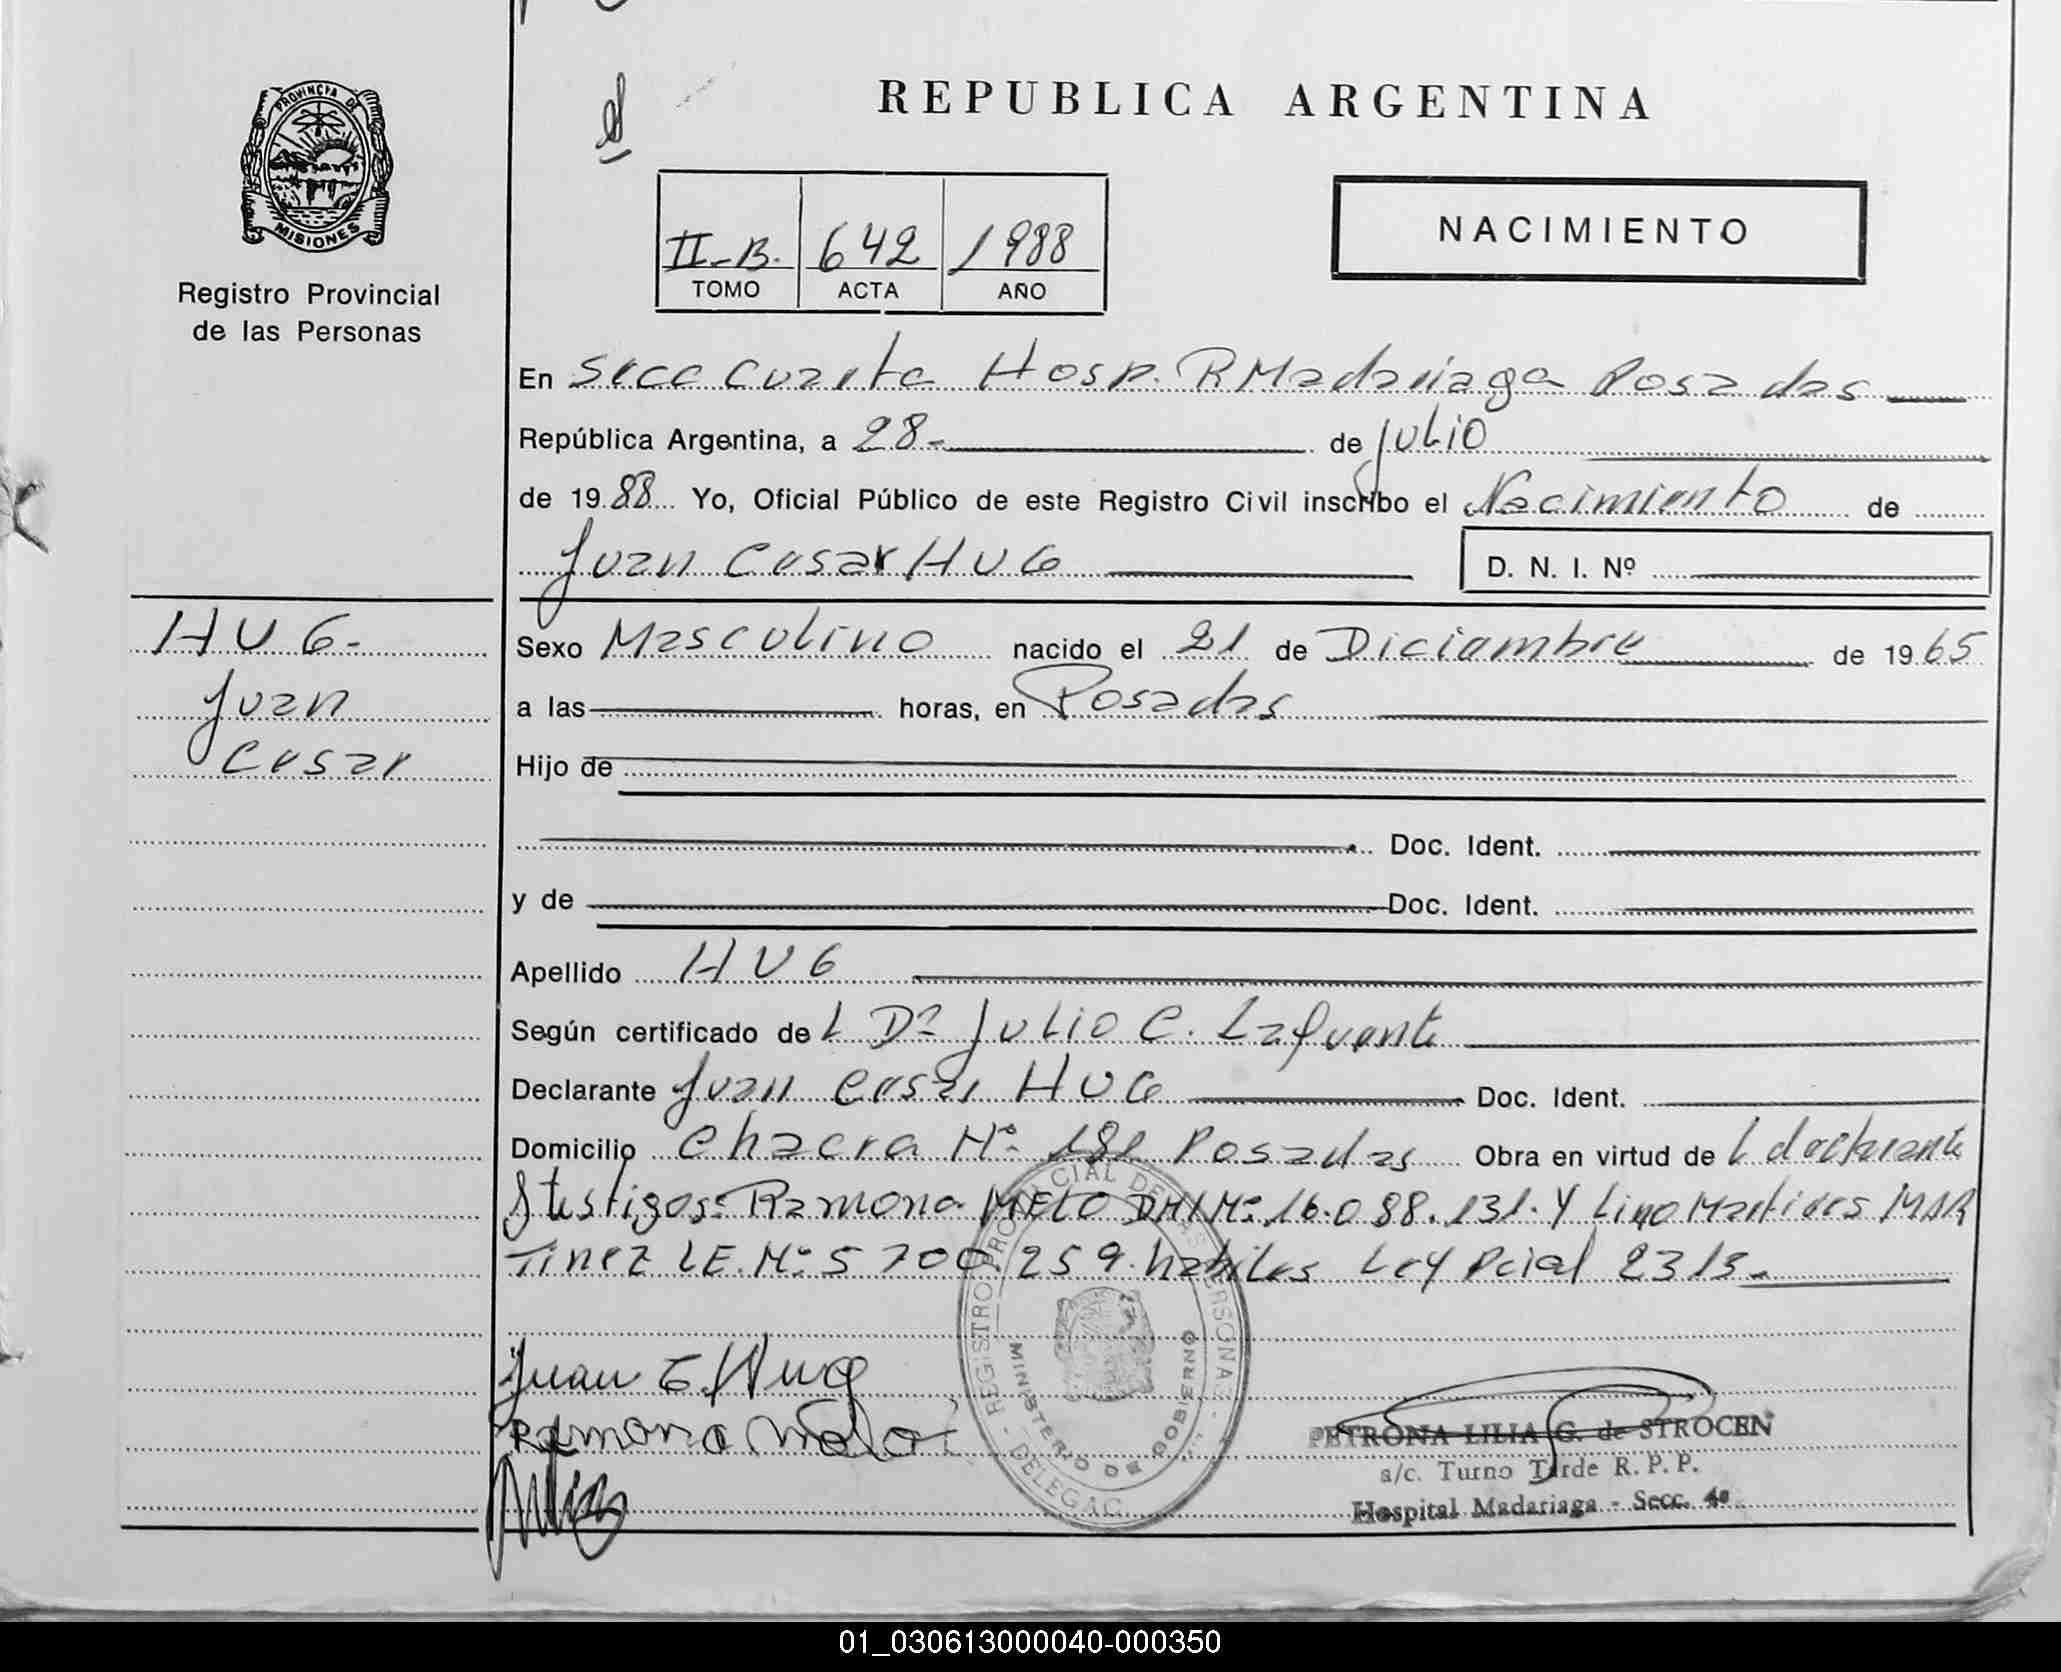 PROVINCIA DE
MISIONES
Registro Provincial
de las Personas
REPUBLICA ARGENTINA
II-B. 642 1988
TOMO ACTA AÑO
NACIMIENTO
En Secc Cuarta Hosp. R Madariaga Posadas
República Argentina, a 28- de Julio
de 1988 Yo, Oficial Público de este Registro Civil inscribo el Nacimiento de
Juan Cesar HUG D. N. I. Nº
HUG-
Juan
Cesar
Sexo Masculino nacido el 21 de Diciembre de 1965
a las horas, en Posadas
Hijo de
Doc. Ident.
y de Doc. Ident.
Apellido HUG
Según certificado del Dr Julio C. Lafuente
Declarante Juan Cesar HUG Doc. Ident.
Domicilio Chacra Nº 181 Posadas Obra en virtud de l declarante
y testigos: Ramona MELO DNI Nº 16.088.131. Y Lino Martires MAR
TINEZ LE. Nº 5 700.259. habiles Ley Pcial 2313-
Juan C. Hug
Ramona Melo
REGISTRO PROVINCIAL DE LAS PERSONAS - DELEGAC.
MINISTERIO DE GOBIERNO
PETRONA LILIA G. de STROCEN
a/c. Turno Tarde R. P. P.
Hospital Madariaga - Secc. 4ª
01_030613000040-000350